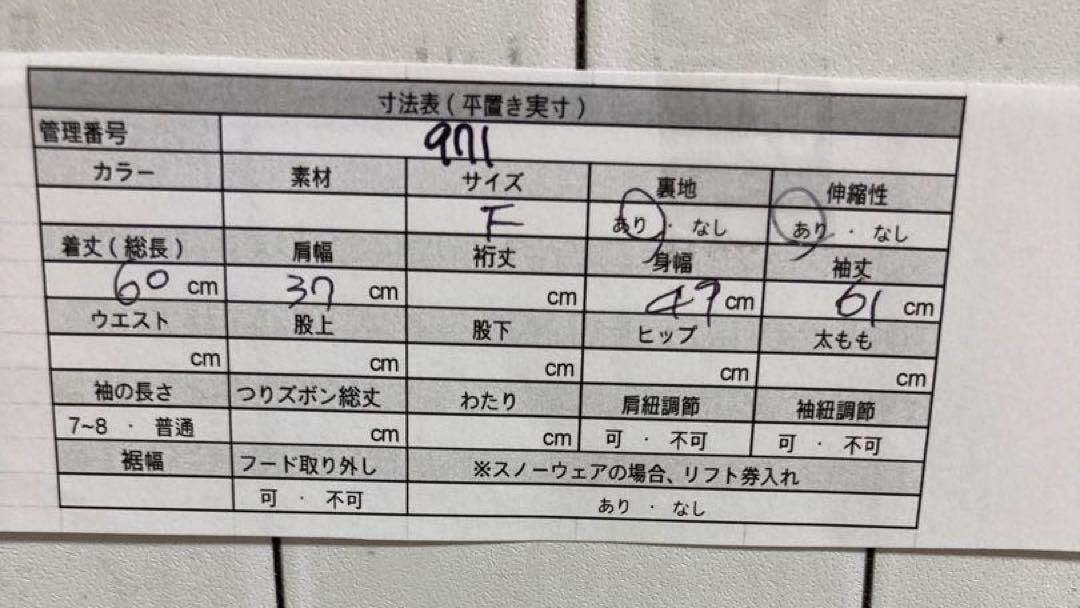 寸法表(平置き実寸)
管理番号 971
カラー 素材 サイズ 裏地 伸縮性
F あり・なし あり・なし
着丈(総長) 肩幅 裄丈 身幅 袖丈
60 cm 37 cm cm 49 cm 61 cm
ウエスト 股上 股下 ヒップ 太もも
cm cm cm cm cm
袖の長さ つりズボン総丈 わたり 肩紐調節 袖紐調節
7~8・普通 cm cm 可・不可 可・不可
裾幅 フード取り外し ※スノーウェアの場合、リフト券入れ
可・不可 あり・なし